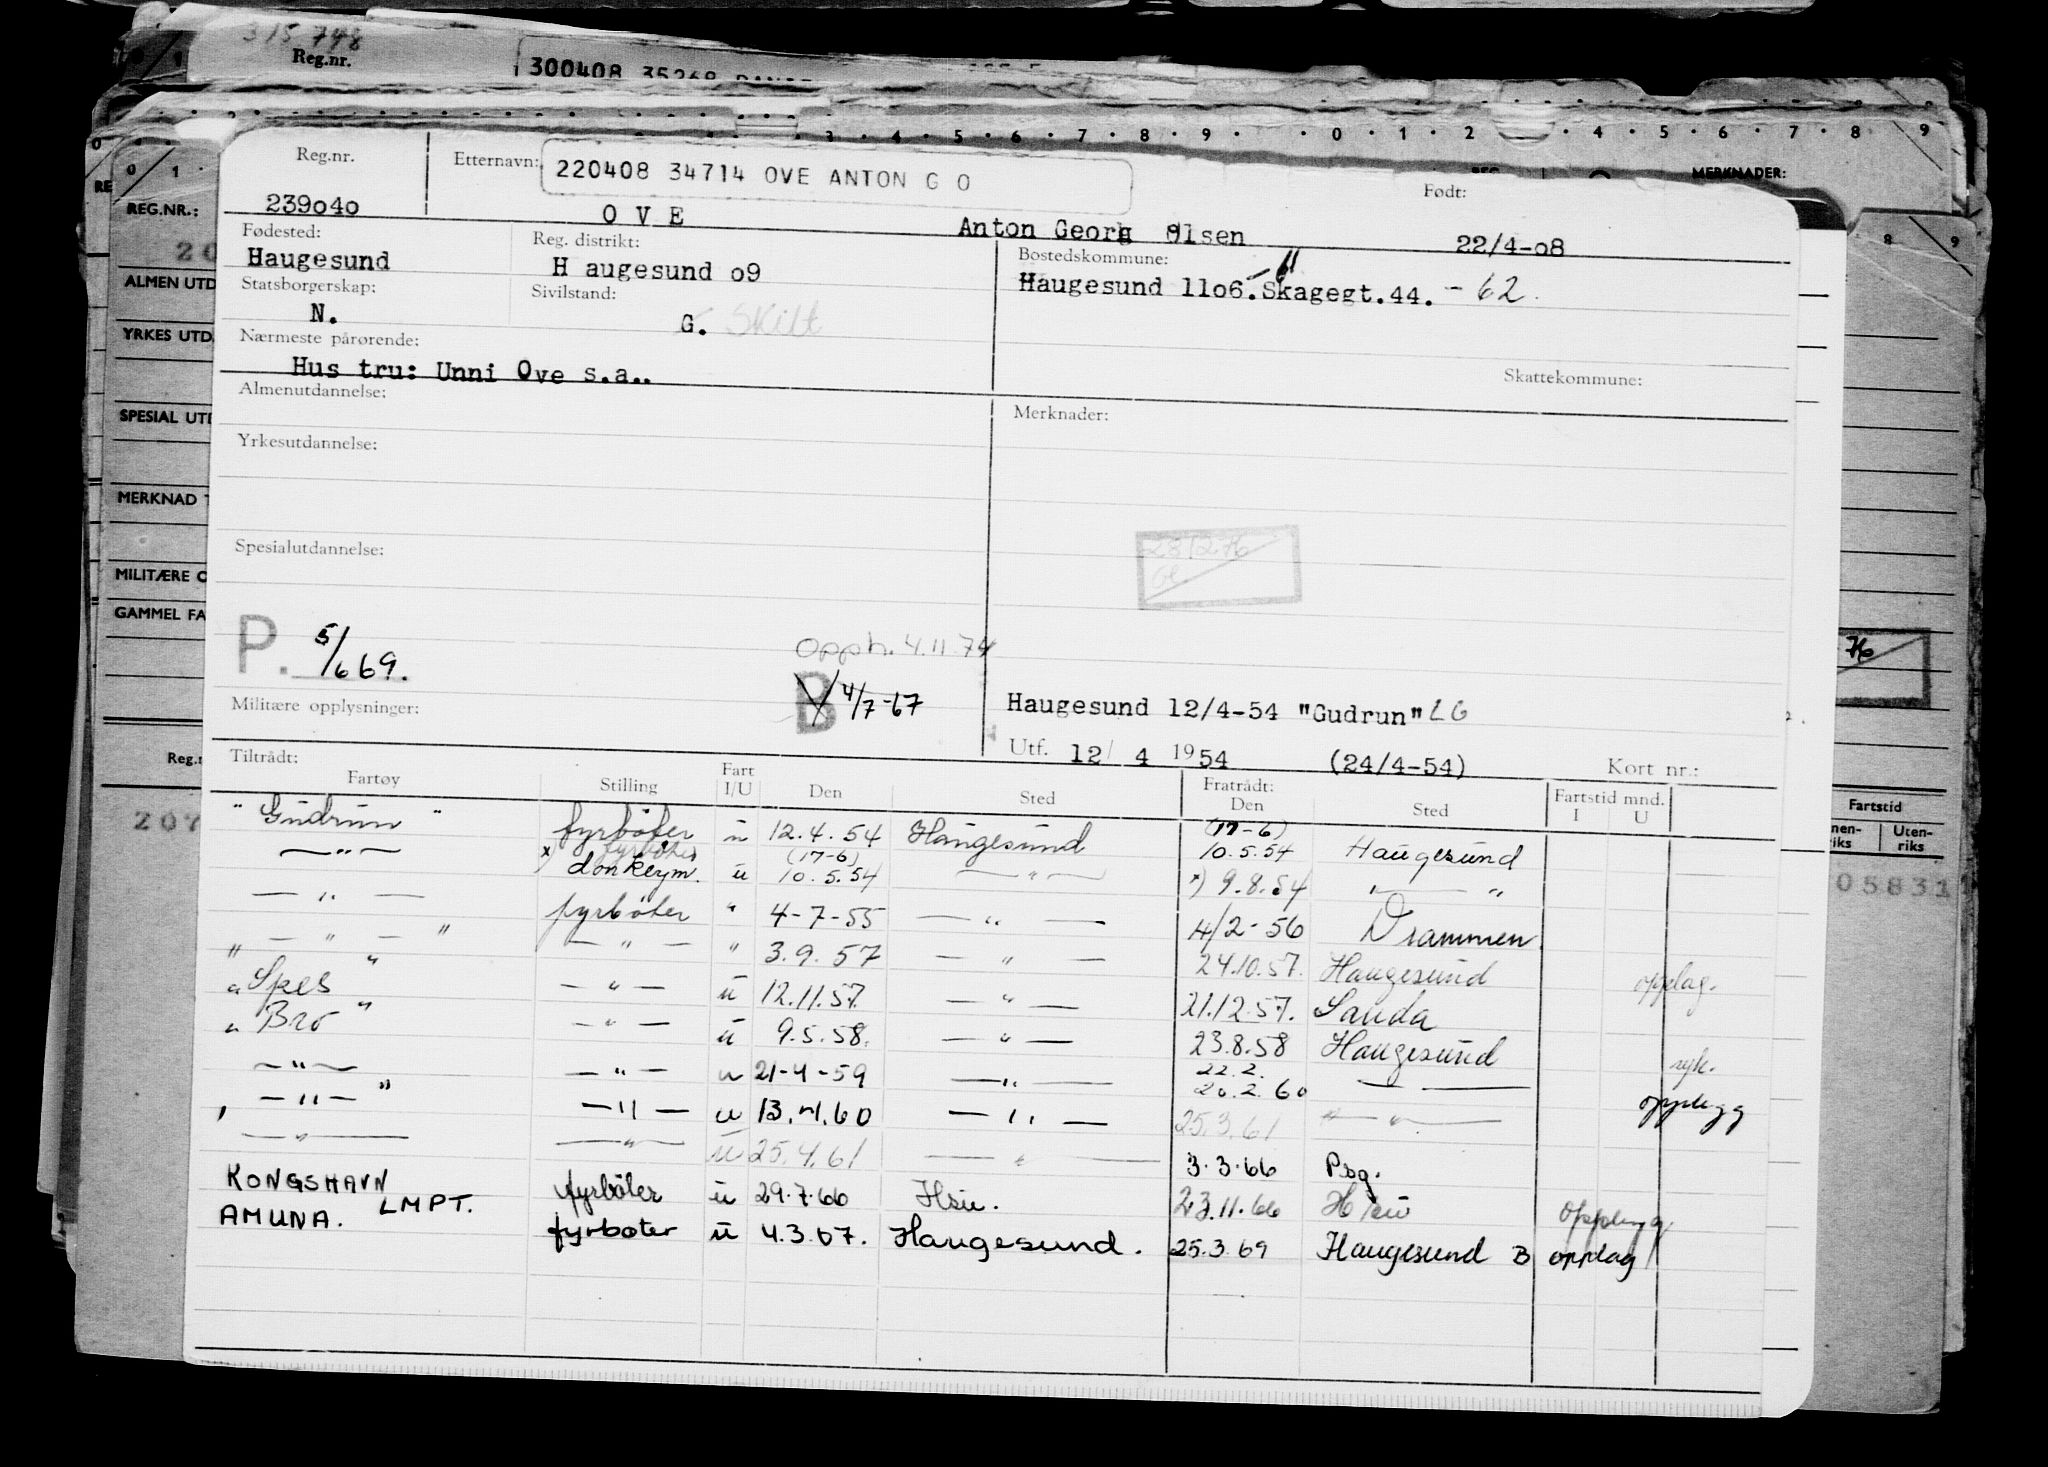 315 748
Reg.nr.
300408 35268
3 · 4 · 5 · 6 · 7 · 8 · 9 · 0 · 1 · 2 · 4 · 5 · 6 · 7 · 8 · 9
MERKNADER:
REG.NR.:
ALMEN UTD
YRKES UTD.
SPESIAL UTD
MERKNAD T
MILITÆRE O
GAMMEL FA
Reg.nr.
Etternavn:
220408 34714 OVE ANTON G O
Født:
239o4o
O V E
Anton Georg Olsen
22/4-o8
Fødested:
Reg. distrikt:
Bostedskommune:
Haugesund
H augesund o9
Haugesund 11o6. Skagegt.44. - 62.
Statsborgerskap:
Sivilstand:
N.
G. Skilt
Nærmeste pårørende:
Hus tru: Unni Ove s.a..
Skattekommune:
Almenutdannelse:
Merknader:
Yrkesutdannelse:
Spesialutdannelse:
P. 5/6 69.
Opph. 4.11.74
B 4/7-67
Militære opplysninger:
Haugesund 12/4-54 "Gudrun" LG
Utf. 12/ 4 1954 (24/4-54) Kort nr.:
Tiltrådt:
Fartøy Stilling Fart I/U Den Sted Fratrådt: Den Sted Fartstid mnd. I U
" Gudrun " fyrbøter u 12.4.54 Haugesund (17-6) 10.5.54 Haugesund
— " — x) fyrbøter donkeym. u (17-6) 10.5.54 — " — x) 9.8.54 — "
— " — fyrbøter " 4-7-55 — " — 4/2-56 Drammen
" — " — " — " — " 3.9.57 — " — 24.10.57. Haugesund opplag.
" Spes " — " — u 12.11.57. — " — 21.12.57. Sauda
" Bro " — " — u 9.5.58. — " — 23.8.58 Haugesund syk.
— " — — " — u 21-4-59 — " — 22.2. 20.2.60 — " — opplegg
— " — " — " — u 13.4.60 — " — 25.3.61 — " —
— " — — " — u 25.4.61 — " — 3.3.66 Psg.
KONGSHAVN fyrbøter u 29.7.66 Hsu. 23.11.66 Hsu Opplegg.
AMUNA. LMPT. fyrbøter u 4.3.67. Haugesund. 25.3.69 Haugesund B opplag
Fartstid
Uten-
riks